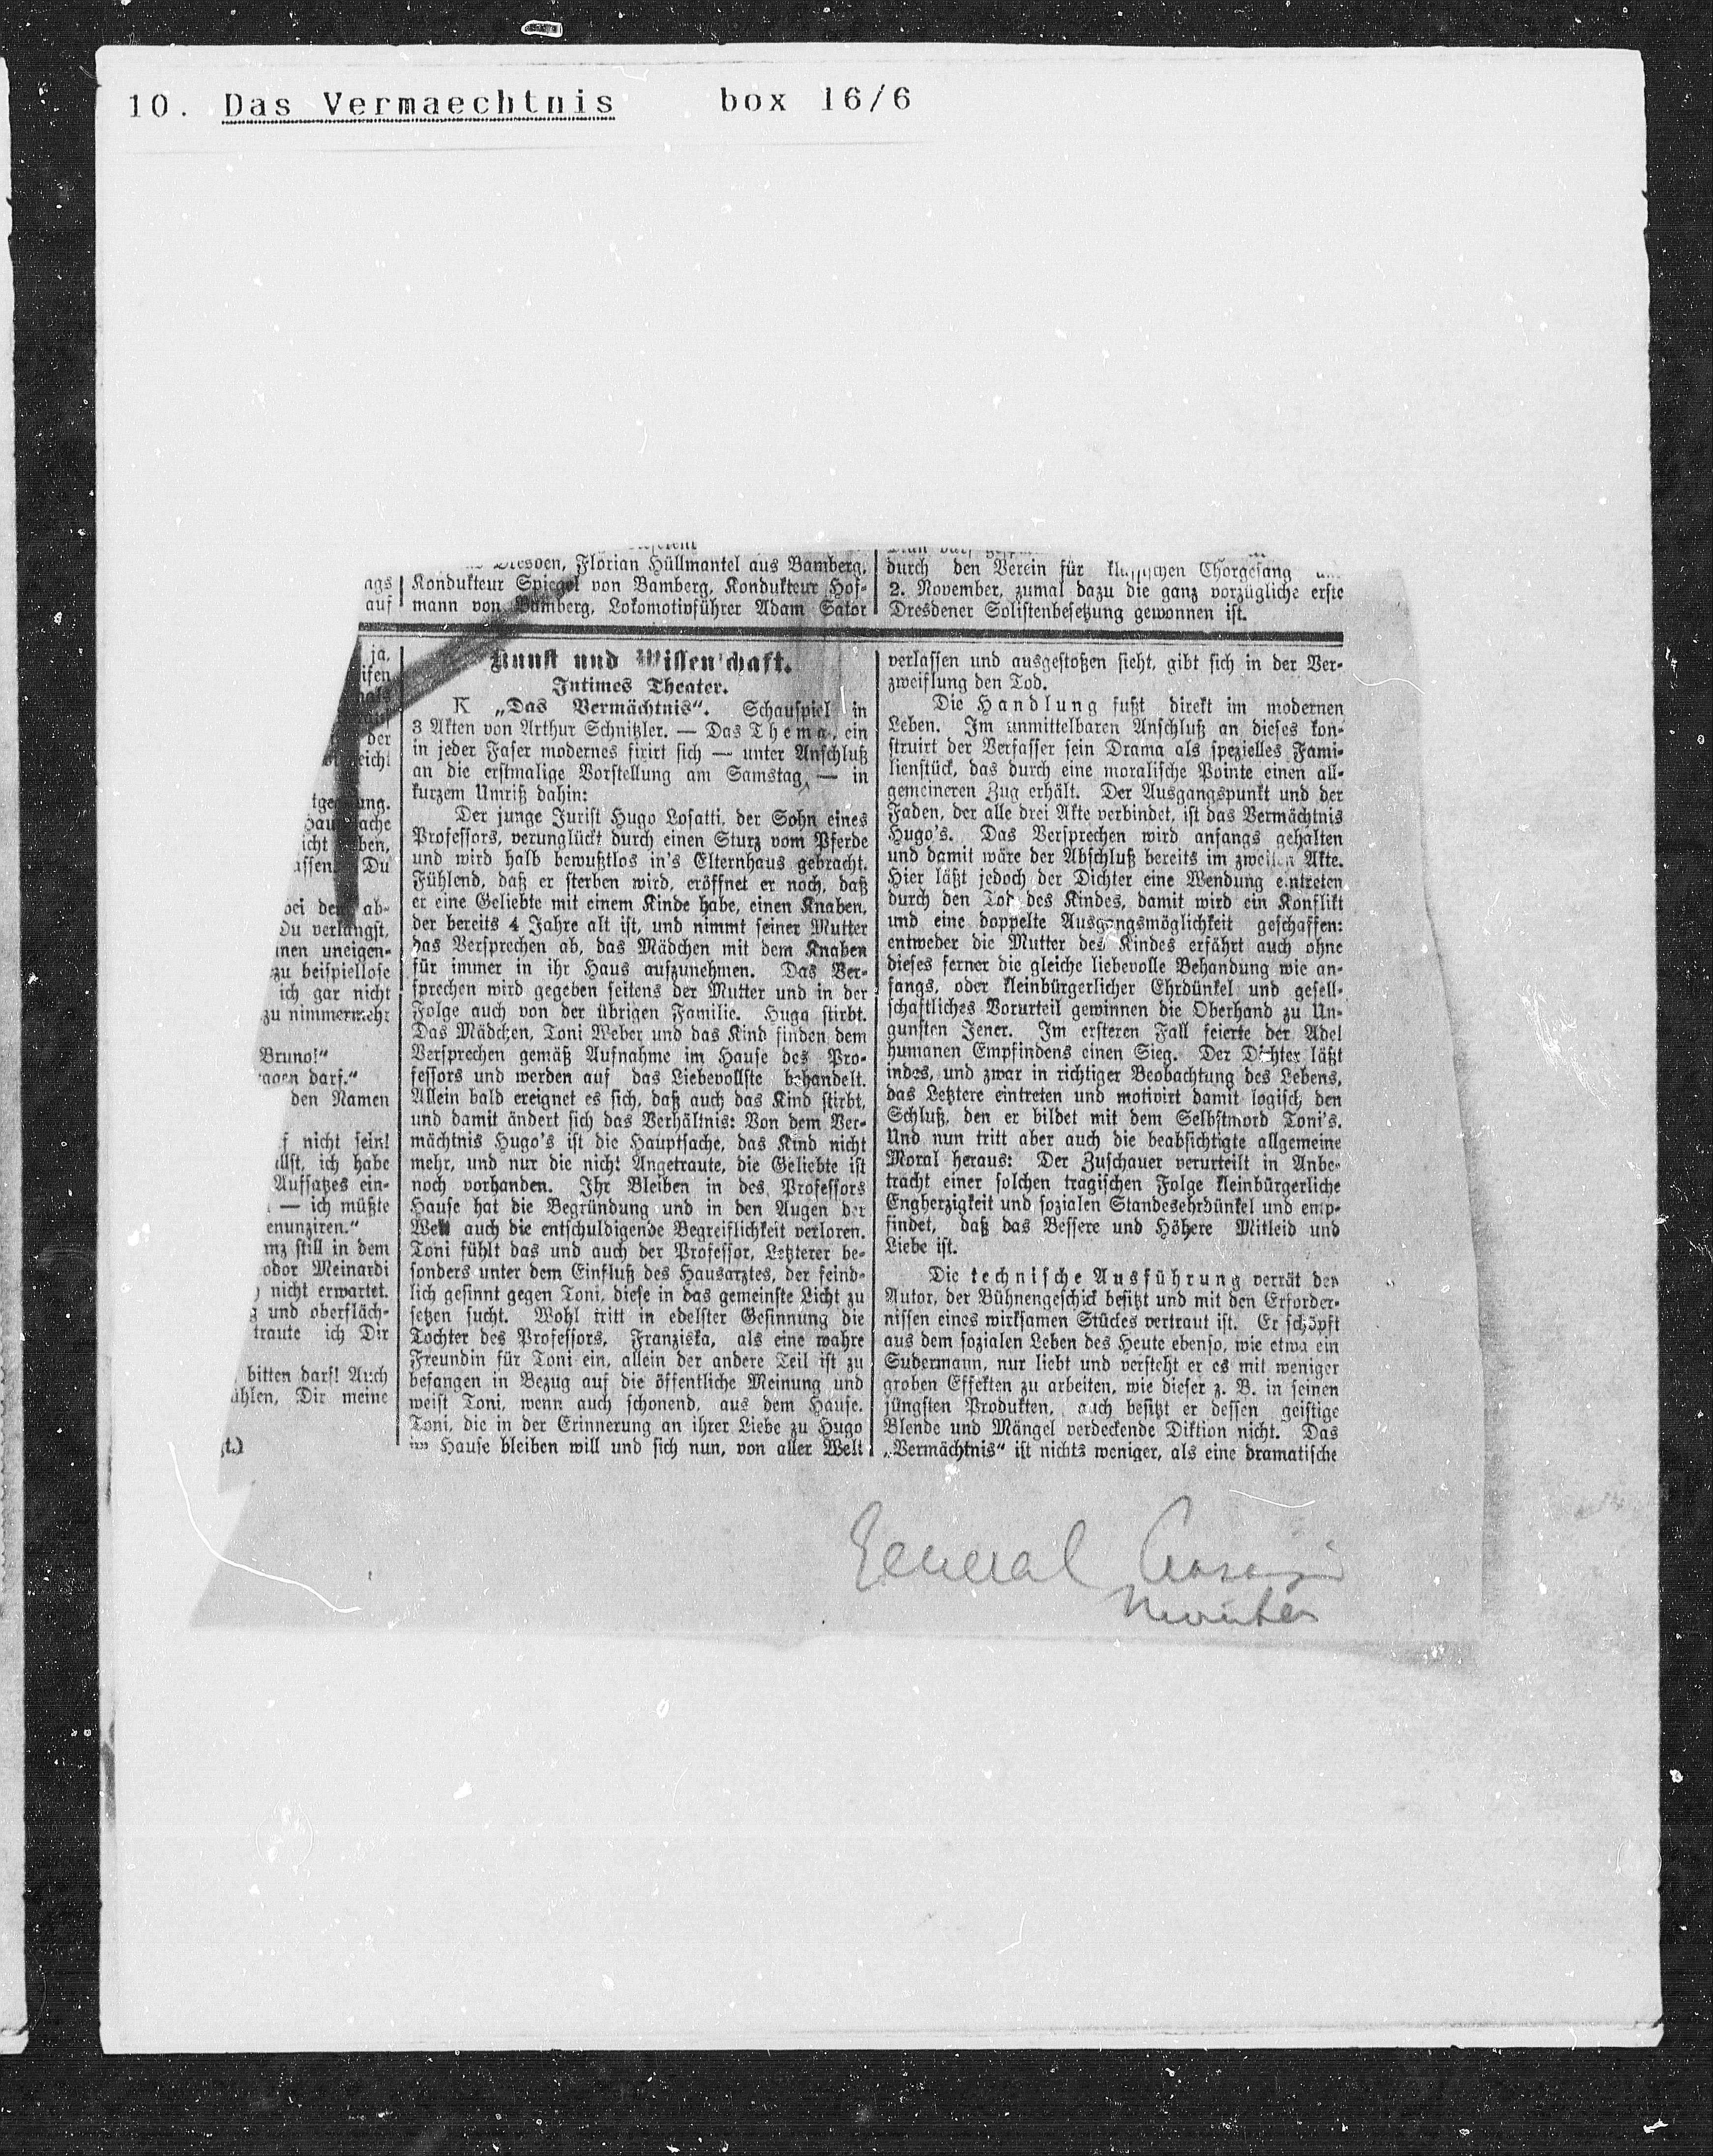 10. Das Vermaechtnis box 16/6
Dresden, Florian Hüllmantel aus Bamberg,
Kondukteur Spiegel von Bamberg, Kondukteur Hof-
mann von Bamberg, Lokomotivführer Adam Sator
durch den Verein für klassischen Chorgesang
2. November, zumal dazu die ganz vorzügliche erste
Dresdener Solistenbesetzung gewonnen ist.
ags
auf
ja,
ifen
der
eicht
ung.
ache
icht ben,
assen. Du
bei dem ab-
Du verlangst,
inen uneigen-
zu beispiellose
ich gar nicht
zu nimmermehr
Bruno!“
ragen darf.“
den Namen
f nicht sein!
llst, ich habe
Aufsatzes ein-
— ich müßte
enunziren.“
nz still in dem
odor Meinardi
nicht erwartet.
g und oberfläch-
traute ich Dir
bitten darf! Auch
ählen, Dir meine
t.)
Kunst und Wissenschaft.
Intimes Theater.
K „Das Vermächtnis“. Schauspiel in
3 Akten von Arthur Schnitzler. — Das Thema, ein
in jeder Faser modernes fixirt sich — unter Anschluß
an die erstmalige Vorstellung am Samstag, — in
kurzem Umriß dahin:
Der junge Jurist Hugo Losatti, der Sohn eines
Professors, verunglückt durch einen Sturz vom Pferde
und wird halb bewußtlos in's Elternhaus gebracht.
Fühlend, daß er sterben wird, eröffnet er noch, daß
er eine Geliebte mit einem Kinde habe, einen Knaben,
der bereits 4 Jahre alt ist, und nimmt seiner Mutter
das Versprechen ab, das Mädchen mit dem Knaben
für immer in ihr Haus aufzunehmen. Das Ver-
sprechen wird gegeben seitens der Mutter und in der
Folge auch von der übrigen Familie. Hugo stirbt.
Das Mädchen, Toni Weber und das Kind finden dem
Versprechen gemäß Aufnahme im Hause des Pro-
fessors und werden auf das Liebevollste behandelt.
Allein bald ereignet es sich, daß auch das Kind stirbt,
und damit ändert sich das Verhältnis: Von dem Ver-
mächtnis Hugo's ist die Hauptsache, das Kind nicht
mehr, und nur die nicht Angetraute, die Geliebte ist
noch vorhanden. Ihr Bleiben in des Professors
Hause hat die Begründung und in den Augen der
Welt auch die entschuldigende Begreiflichkeit verloren.
Toni fühlt das und auch der Professor, Letzterer be-
sonders unter dem Einfluß des Hausarztes, der feind-
lich gesinnt gegen Toni, diese in das gemeinste Licht zu
setzen sucht. Wohl tritt in edelster Gesinnung die
Tochter des Professors, Franziska, als eine wahre
Freundin für Toni ein, allein der andere Teil ist zu
befangen in Bezug auf die öffentliche Meinung und
weist Toni, wenn auch schonend, aus dem Hause.
Toni, die in der Erinnerung an ihrer Liebe zu Hugo
im Hause bleiben will und sich nun, von aller Welt
verlassen und ausgestoßen sieht, gibt sich in der Ver-
zweiflung den Tod.
Die Handlung fußt direkt im modernen
Leben. Im unmittelbaren Anschluß an dieses kon-
struirt der Verfasser sein Drama als spezielles Fami-
lienstück, das durch eine moralische Pointe einen all-
gemeineren Zug erhält. Der Ausgangspunkt und der
Faden, der alle drei Akte verbindet, ist das Vermächtnis
Hugo's. Das Versprechen wird anfangs gehalten
und damit wäre der Abschluß bereits im zweiten Akte.
Hier läßt jedoch der Dichter eine Wendung eintreten
durch den Tod des Kindes, damit wird ein Konflikt
und eine doppelte Ausgangsmöglichkeit geschaffen:
entweder die Mutter des Kindes erfährt auch ohne
dieses ferner die gleiche liebevolle Behandung wie an-
fangs, oder kleinbürgerlicher Ehrdünkel und gesell-
schaftliches Vorurteil gewinnen die Oberhand zu Un-
gunsten Jener. Im ersteren Fall feierte der Adel
humanen Empfindens einen Sieg. Der Dichter läßt
indes, und zwar in richtiger Beobachtung des Lebens,
das Letztere eintreten und motivirt damit logisch den
Schluß, den er bildet mit dem Selbstmord Toni's.
Und nun tritt aber auch die beabsichtigte allgemeine
Moral heraus: Der Zuschauer verurteilt in Anbe-
tracht einer solchen tragischen Folge kleinbürgerliche
Engherzigkeit und sozialen Standesehrdünkel und emp-
findet, daß das Bessere und Höhere Mitleid und
Liebe ist.
Die technische Ausführung verrät den
Autor, der Bühnengeschick besitzt und mit den Erforder-
nissen eines wirksamen Stückes vertraut ist. Er schöpft
aus dem sozialen Leben des Heute ebenso, wie etwa ein
Sudermann, nur liebt und versteht er es mit weniger
groben Effekten zu arbeiten, wie dieser z. B. in seinen
jüngsten Produkten, auch besitzt er dessen geistige
Blende und Mängel verdeckende Diktion nicht. Das
„Vermächtnis“ ist nichts weniger, als eine dramatische
General